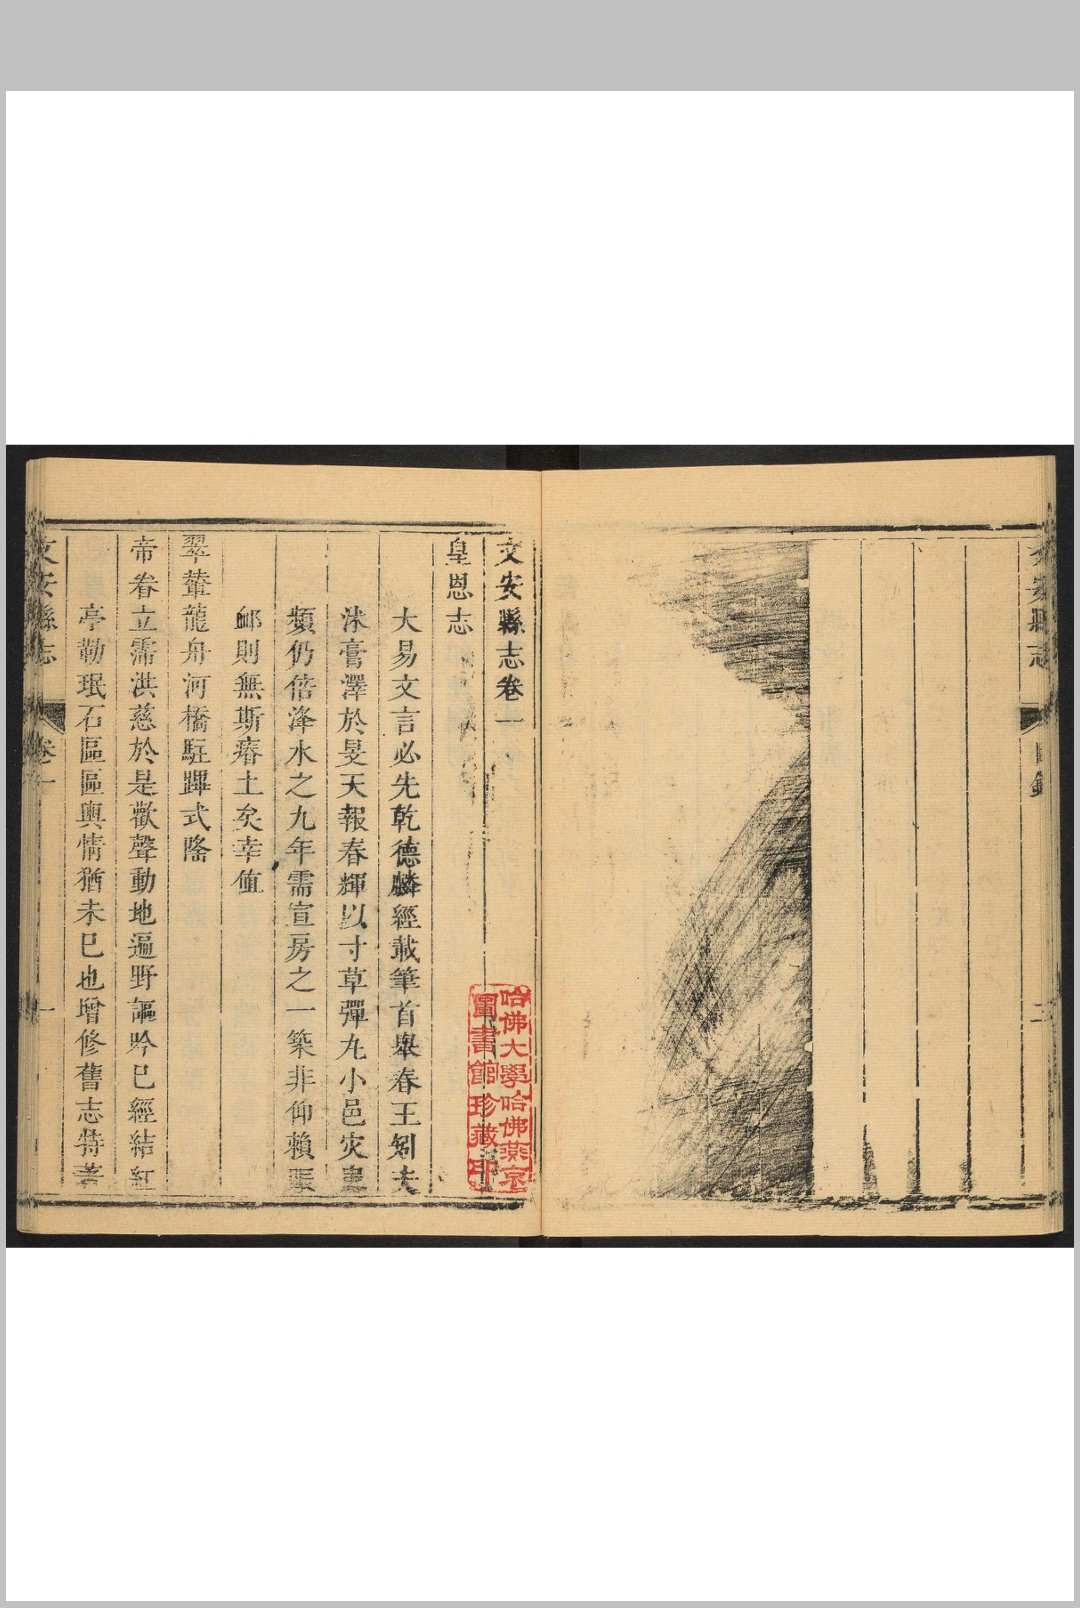 文安縣志
目錄
二
文安縣志卷一
皇恩志
大易文言必先乾德麟經載筆首舉春王矧夫
沐膏澤於旻天報春輝以寸草彈丸小邑灾
類仍倍洚水之九年需宣房之一築非仰賴
則無斯瘠土矣幸值
翠輦龍舟河橋駐蹕式隆
帝眷立霈洪慈於是歡聲動地遍野謳吟已經結紅
亭勒珉石區區輿情猶未已也增修舊志特著
文安縣志
卷一
一
哈佛大學哈佛燕京
圖書館珍藏印